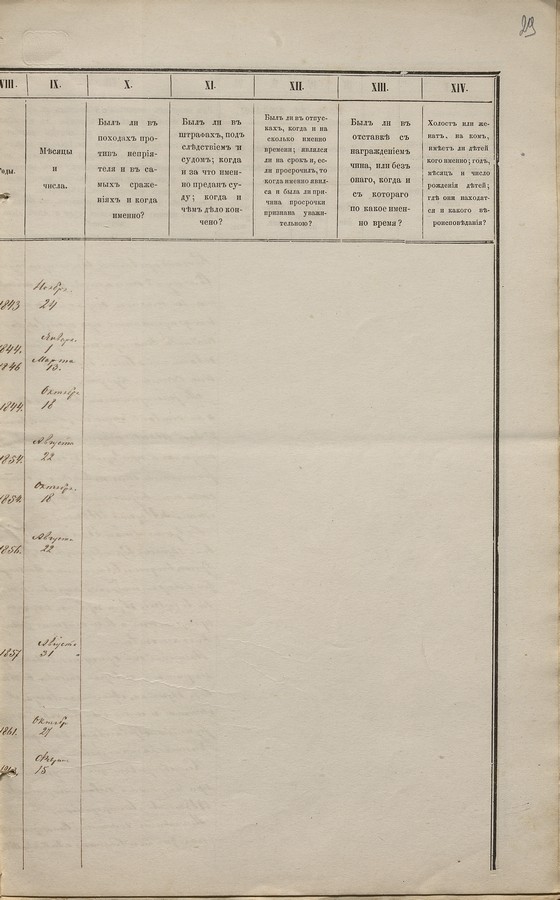 29
VIII. IX. X. XI. XII. XIII. XIV.
Мѣсяцы
и
числа.
Былъ ли въ
походахъ про-
тивъ непрія-
теля и въ са-
мыхъ сраже-
ніяхъ и когда
именно?
Былъ ли въ
штрафахъ, подъ
слѣдствіемъ и
судомъ; когда
и за что имен-
но преданъ су-
ду; когда и
чѣмъ дѣло кон-
чено?
Былъ ли въ отпус-
кахъ, когда и на
сколько именно
времени; явился
ли на срокъ и, ес-
ли просрочилъ, то
когда именно явил-
ся и была ли при-
чина просрочки
признана уважи-
тельною?
Былъ ли въ
отставкѣ съ
награжденіемъ
чина, или безъ
онаго, когда и
съ котораго
по какое имен-
но время?
Холостъ или же-
натъ, на комъ,
имѣетъ ли дѣтей
кого именно; годъ,
мѣсяцъ и число
рожденія дѣтей;
гдѣ они находят-
ся и какого вѣ-
роисповѣданія?
Ноябр.
1843 24
Январ.
1844. 1
Марта
1846 13.
Октябр.
1844. 18
Августа
1854. 22
Октябр.
1854. 18
Август.
1856. 22
Август.
1857 31
Октябр
1861. 27
15